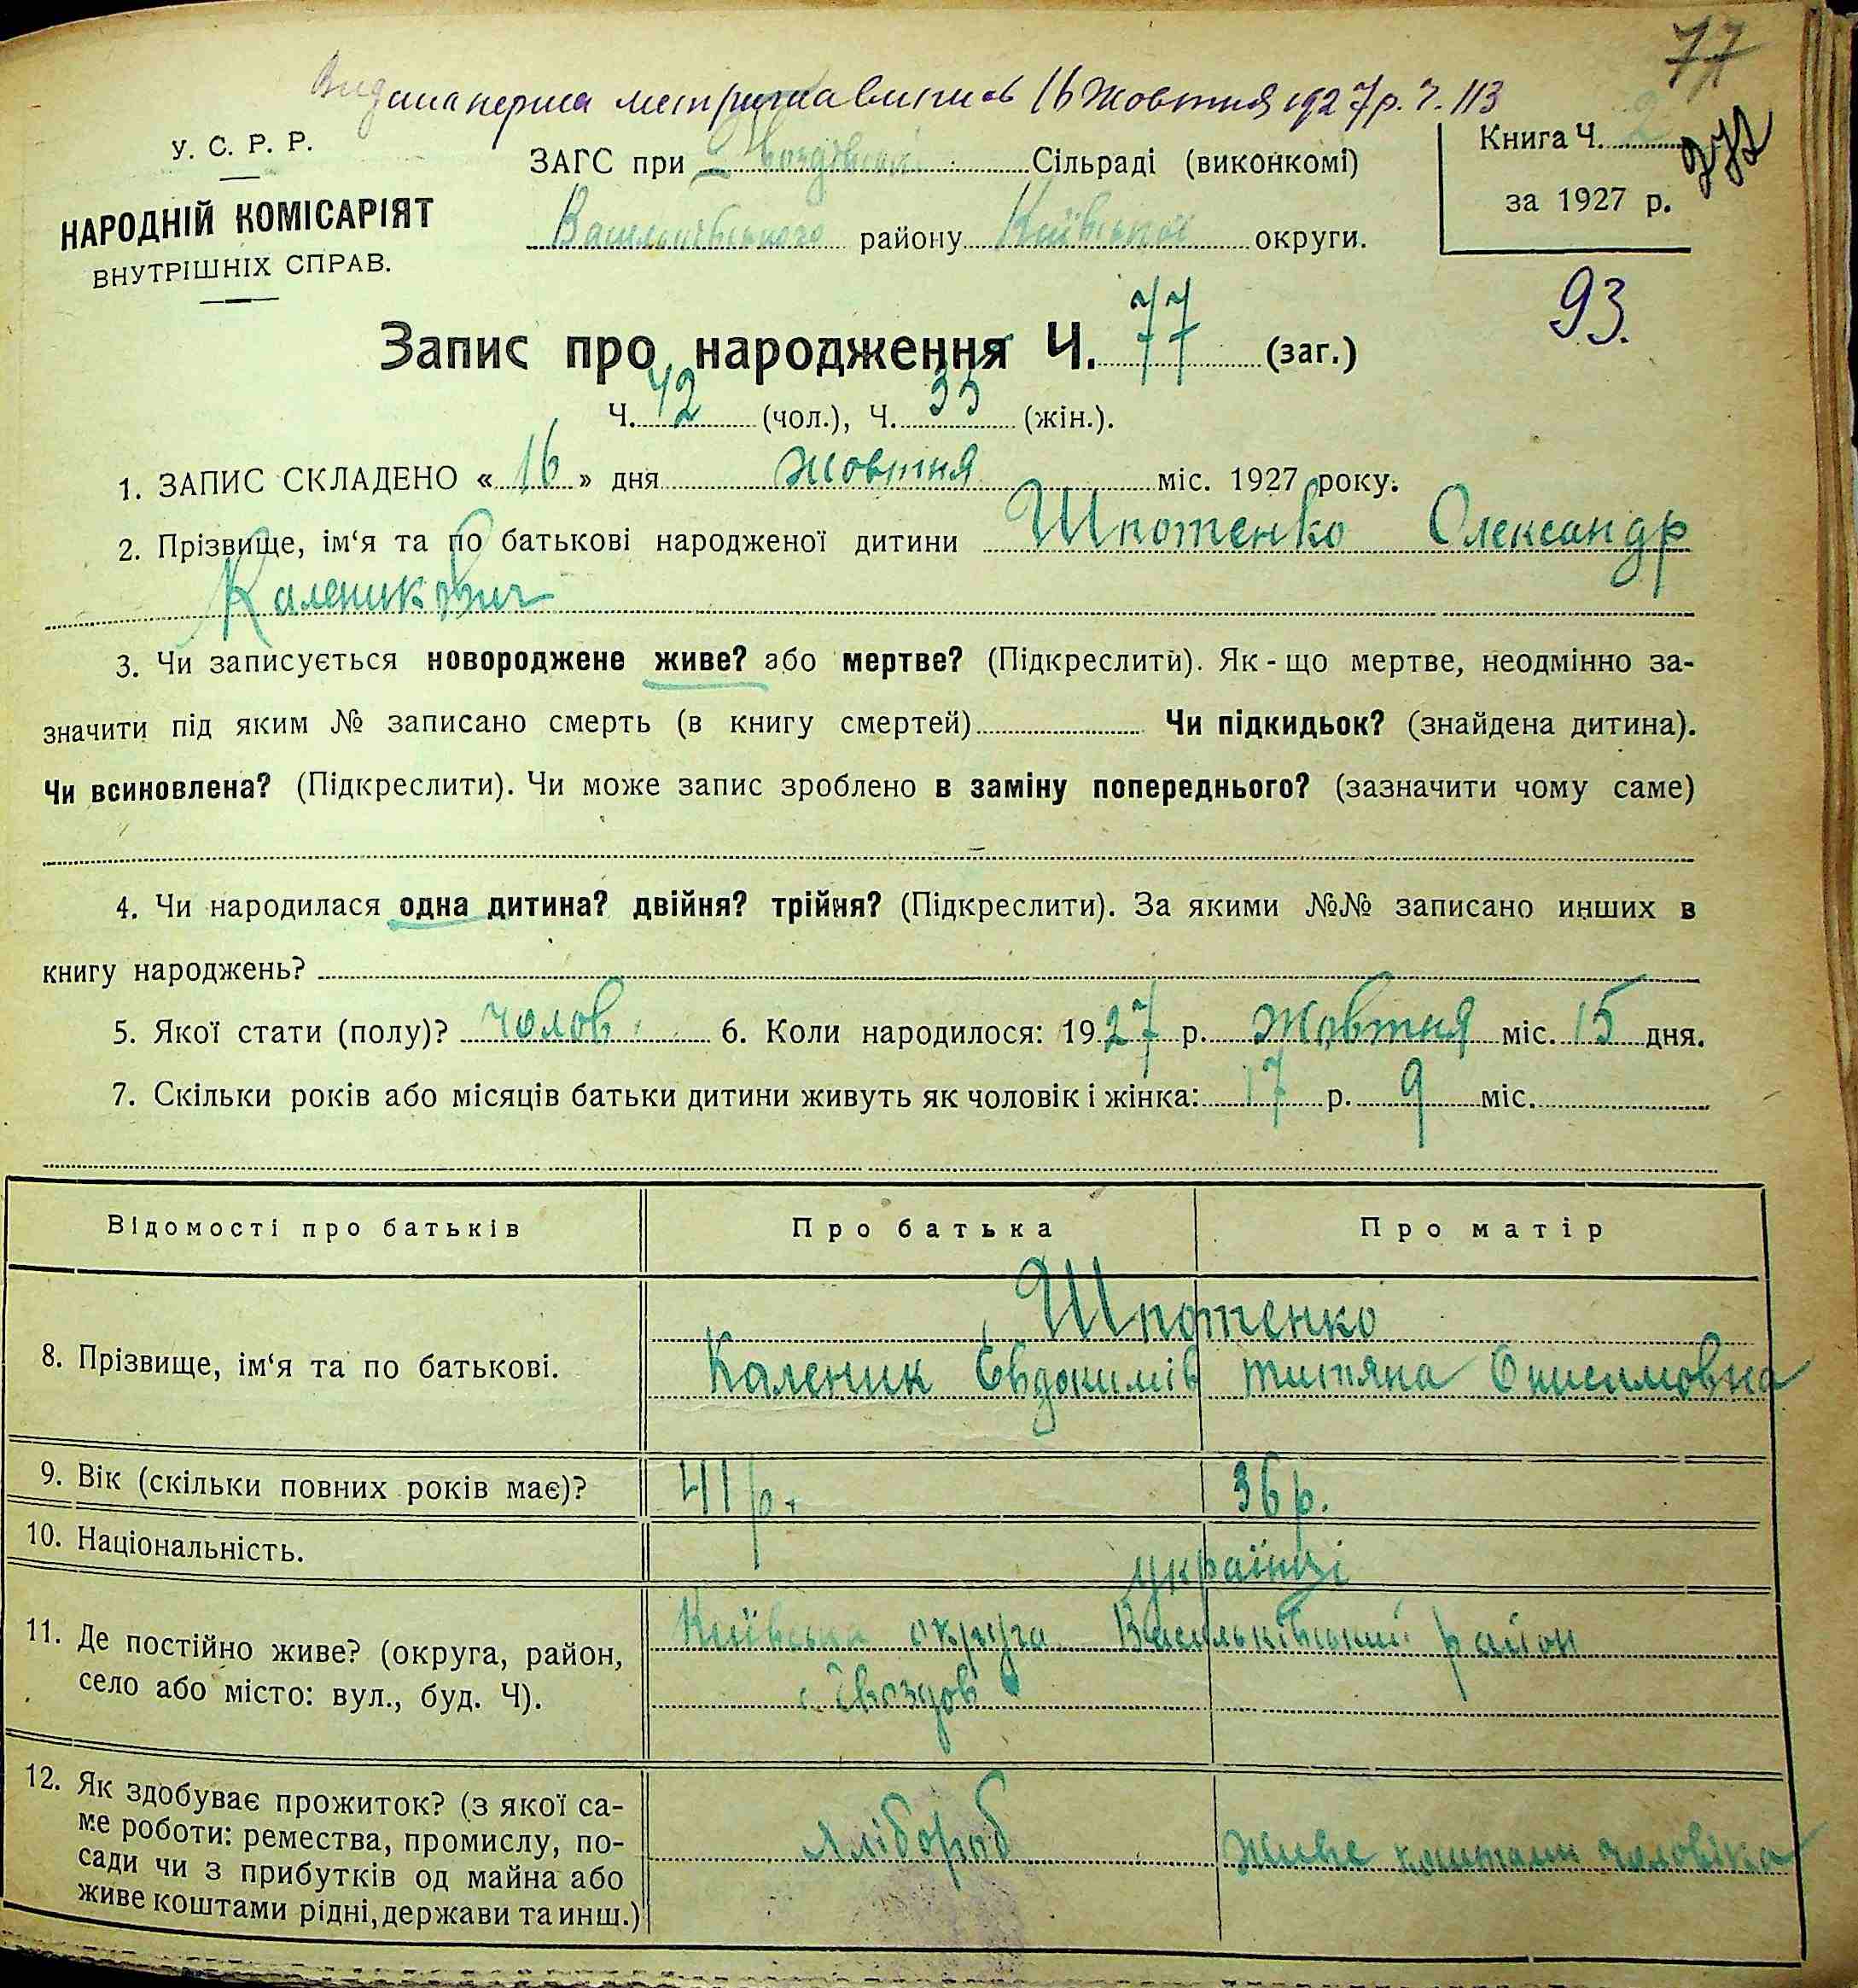 77
Видана перша метрична виписъ 16 Жовтня 1927 р. Ч. 113
У. С. Р. Р.
НАРОДНІЙ КОМІСАРІЯТ
ВНУТРІШНІХ СПРАВ.
ЗАГС при Гвоздівські Сільраді (виконкомі)
Васильківського району Київської округи.
Книга Ч. 2
за 1927 р.
93.
Запис про народження Ч. 77 (заг.)
Ч. 42 (чол.), Ч. 35 (жін.).
1. ЗАПИС СКЛАДЕНО « 16 » дня жовтня міс. 1927 року.
2. Прізвище, ім‘я та по батькові народженої дитини Шпотенко Олександр
Каленикович
3. Чи записується новороджене живе? або мертве? (Підкреслити). Як-що мертве, неодмінно за-
значити під яким № записано смерть (в книгу смертей) Чи підкидьок? (знайдена дитина).
Чи всиновлена? (Підкреслити). Чи може запис зроблено в заміну попереднього? (зазначити чому саме)
4. Чи народилася одна дитина? двійня? трійня? (Підкреслити). За якими №№ записано инших в
книгу народжень?
5. Якої стати (полу)? чолов. 6. Коли народилося: 1927 р. Жовтня міс. 15 дня.
7. Скільки років або місяців батьки дитини живуть як чоловік і жінка: 17 р. 9 міс.
Відомості про батьків Про батька Про матір
8. Прізвище, ім‘я та по батькові.
Шпотенко
Каленик Євдокимів Титяна Онисимовна
9. Вік (скільки повних років має)? 41 р. 36 р.
10. Національність. українці
11. Де постійно живе? (округа, район,
село або місто: вул., буд. Ч).
Київська округа Васильківський район
с. Гвоздов
12. Як здобуває прожиток? (з якої са-
ме роботи: ремества, промислу, по-
сади чи з прибутків од майна або
живе коштами рідні, держави та инш.)
хлібороб Живе коштами чоловіка